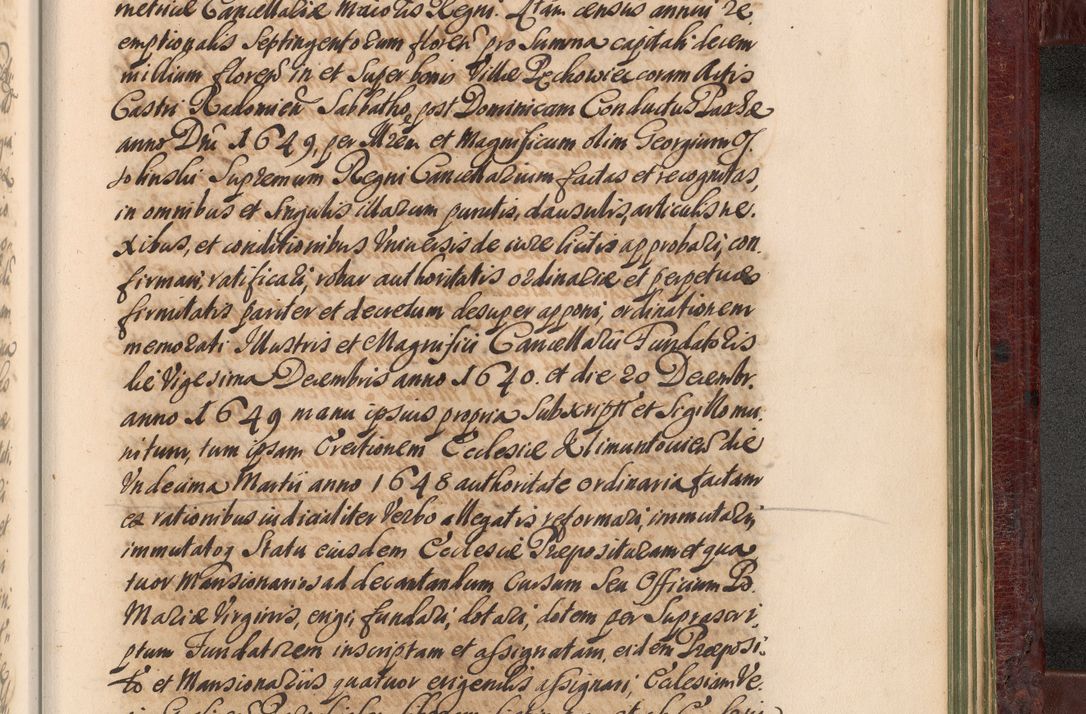 metricæ Cancellariæ Maioris Regni. Atam census annui re,
emptionalis Septingentorum floren̄ pro Summa capitali decem
millium floren̄ in et Super bonis Villæ Pęchowiec coram Actis
Castri Radomien̄ Sabbatho post Dominicam Conductus Paschæ
anno Dn̄i 1649, per Illrēm et Magnificum olim Georgium O
ssolinski Supremum Regni Cancellarium factas et recognitas,
in omnibus et singulis illarum punctis, clausulis, articulis ne.
xibus, et conditionibus Vniversis de iure licitis approbari, con
firmari, ratificari, robur authoritatis ordinariæ et perpetuæ
firmitatis pariter et decretum desuper apponi, ordinationem
memorati Illustris et Magnifici Cancellarii Fundatoris
die Vigesima Decembris anno 1640. et die 20 Decembr.
anno 1649 manu ipsius propria Subscript et Sigillo mu
nitum, tum ipsam Erectionem Ecclesiæ Klimuntovien die
Vndecima Martii anno 1648 authoritate ordinaria factam
ex rationibus iudicialiter Verbo allegatis reformari, immutari,
immutatoq Statu eiusdem Ecclesiæ Præposituram et qua
tuor Mansionarios ad decantandum Cursum Seu Officium B.
Mariæ Virginis, erigi, fundari, dotari, dotem per Suprascri,
ptum Fundatorem inscriptam et assignatam, eidem Præposi
to et Mansionariis quatuor erigendis assignari, Ecclesiam Ve.